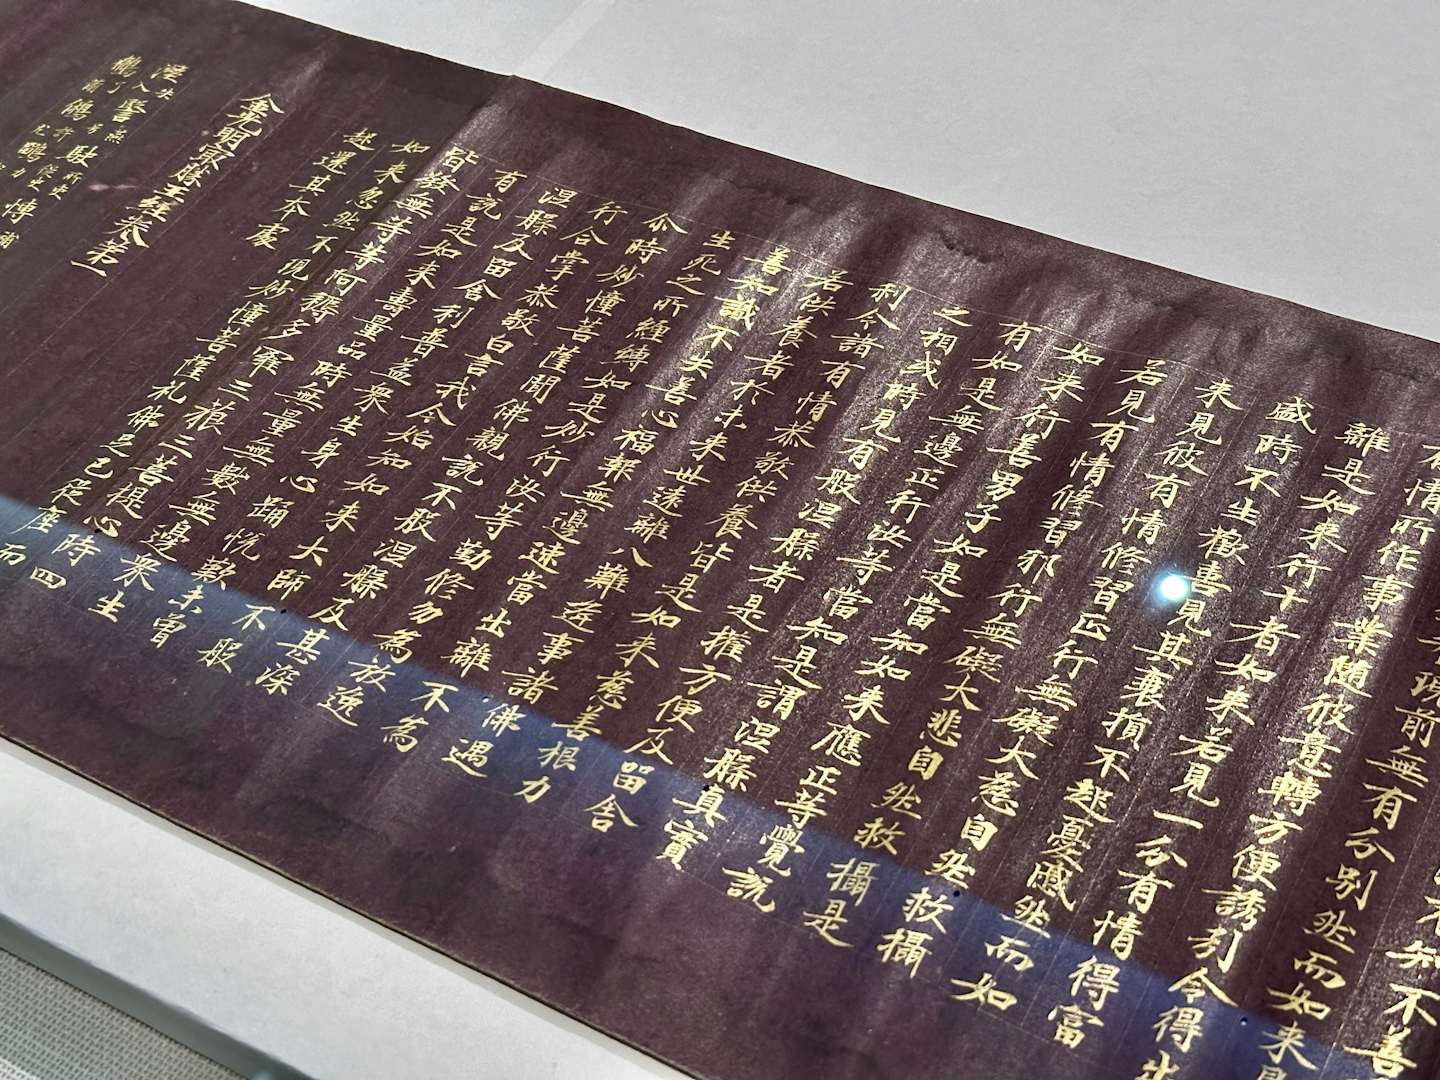 知不善
現前無有分別然而如來見
有情所作事業隨彼意轉方便誘引令得出
離是如來行十者如來若見一分有情得富
盛時不生歡喜見其衰損不起憂慼然而如
來見彼有情修習正行無礙大慈自然救攝
若見有情修習邪行無礙大悲自然救攝是
如來行善男子如是當知如來應正等覺說
有如是無邊正行汝等當知是謂涅槃真實
之相或時見有般涅槃者是權方便及留舍
利令諸有情恭敬供養皆是如來慈善根力
若供養者於未來世遠離八難逢事諸佛遇
善知識不失善心福報無邊速當出離不為
生死之所纏縛如是妙行汝等勤修勿為放逸
尒時妙幢菩薩聞佛親說不般涅槃及甚深
行合掌恭敬白言我今始知如來大師不般
涅槃及留舍利普益衆生身心踊悅歎未曾
有說是如來壽量品時無量無數無邊衆生
皆發無等等阿耨多羅三藐三菩提心時四
如來忽然不現妙幢菩薩礼佛足已從座而
起還其本處
金光明寂勝王經卷第一
溼失入翳燕駃博補
鶴鵂鶹